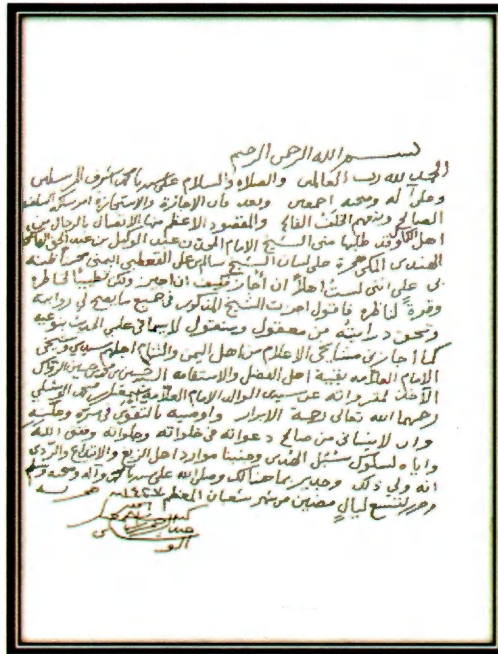 بسم الله الرحمن الرحيم
الحمد لله رب العالمين والصلاة والسلام على سيدنا محمد اشرف المرسلين
وعلى آله وصحبه اجمعين وبعد فان الاجازة والاستجازة امر سلكه السلف
الصالح وتبعهم الخلف الفالح والمقصود الاعظم منها الاتصال بالرجال من
اهل الكمال وقد طلبها مني الشيخ عبد الوكيل بن عبد الحق الهاشمي
الهندي المكي هجرة على لسان الشيخ سالم بن علي اليمني حسن ظنه
بي على انني لست اهلاً ان أُجاز فكيف ان اجيز ولكن تطييباً لخاطره
وقرةً لناظره فاقول اجزت الشيخ المذكور في جميع ما يصح لي روايته
وتحق درايته من معقول ومنقول لا سيما في علمي الحديث بنوعيه
كما اجازني مشايخي الاعلام من اهل اليمن والشام اجلهم سيدي وشيخي
الامام العلامة بقية اهل الفضل والاستقامة السيد حسين بن محمد
الآخذ لمقرواته عن سيدي الوالد الامام العلامة
رحمهما الله تعالى رحمة الابرار واوصيه بالتقوى في سره وعلنه
وان لا ينساني من صالح دعواته في خلواته وجلواته وفقني الله
واياه لسلوك سبل الهدى وجنبنا موارد اهل الزيغ والردى
انه ولي ذلك وجدير بما هنالك وصلى الله على سيدنا محمد وآله وصحبه وسلم
وحرر لتسع ليالٍ مضين من شهر شعبان المعظم